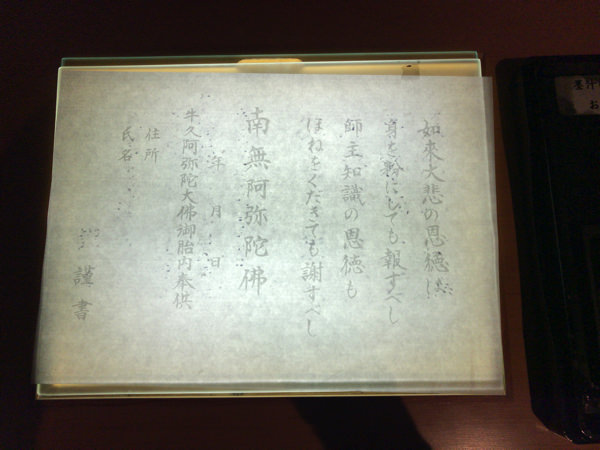 如来大悲の恩徳は
身を粉にしても報すべし
師主知識の恩徳も
ほねをくだきても謝すべし
南無阿弥陀佛
年 月 日
牛久阿弥陀大佛御胎内奉供
住所
氏名
謹書
墨汁
お